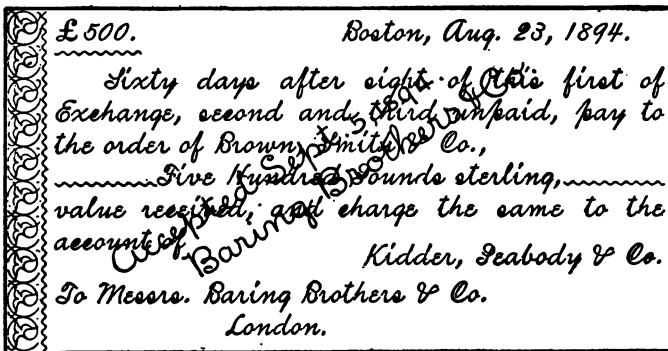 £500. Boston, Aug. 23, 1894.
Sixty days after sight of this first of
Exchange, second and third unpaid, pay to
the order of Brown, Smith & Co.,
Five Hundred Pounds sterling,
value received, and charge the same to the
account of
Kidder, Peabody & Co.
To Messrs. Baring Brothers & Co.
London.
Accepted Sept. 5, 1894.
Baring Brothers & Co.